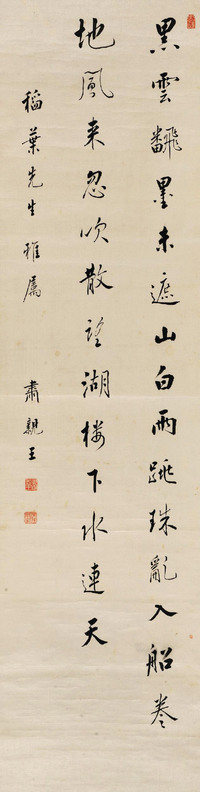 黒雲飜墨未遮山白雨跳珠亂入船卷
地風来忽吹散望湖楼下水連天
稲葉先生雅属
肅親王